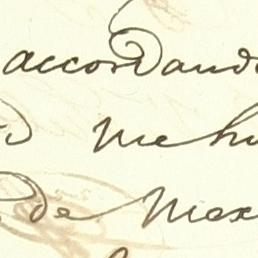 accordand
me hu
de Mex